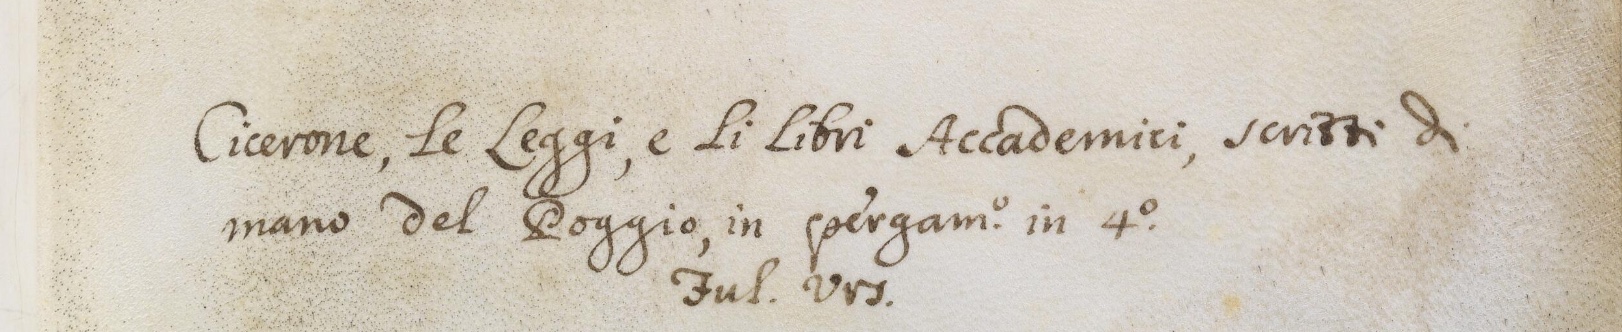 Cicerone, le Leggi, e li libri Accademici, scritti di
mano del Poggio, in pergam.º in 4º.
Ful. Urs.